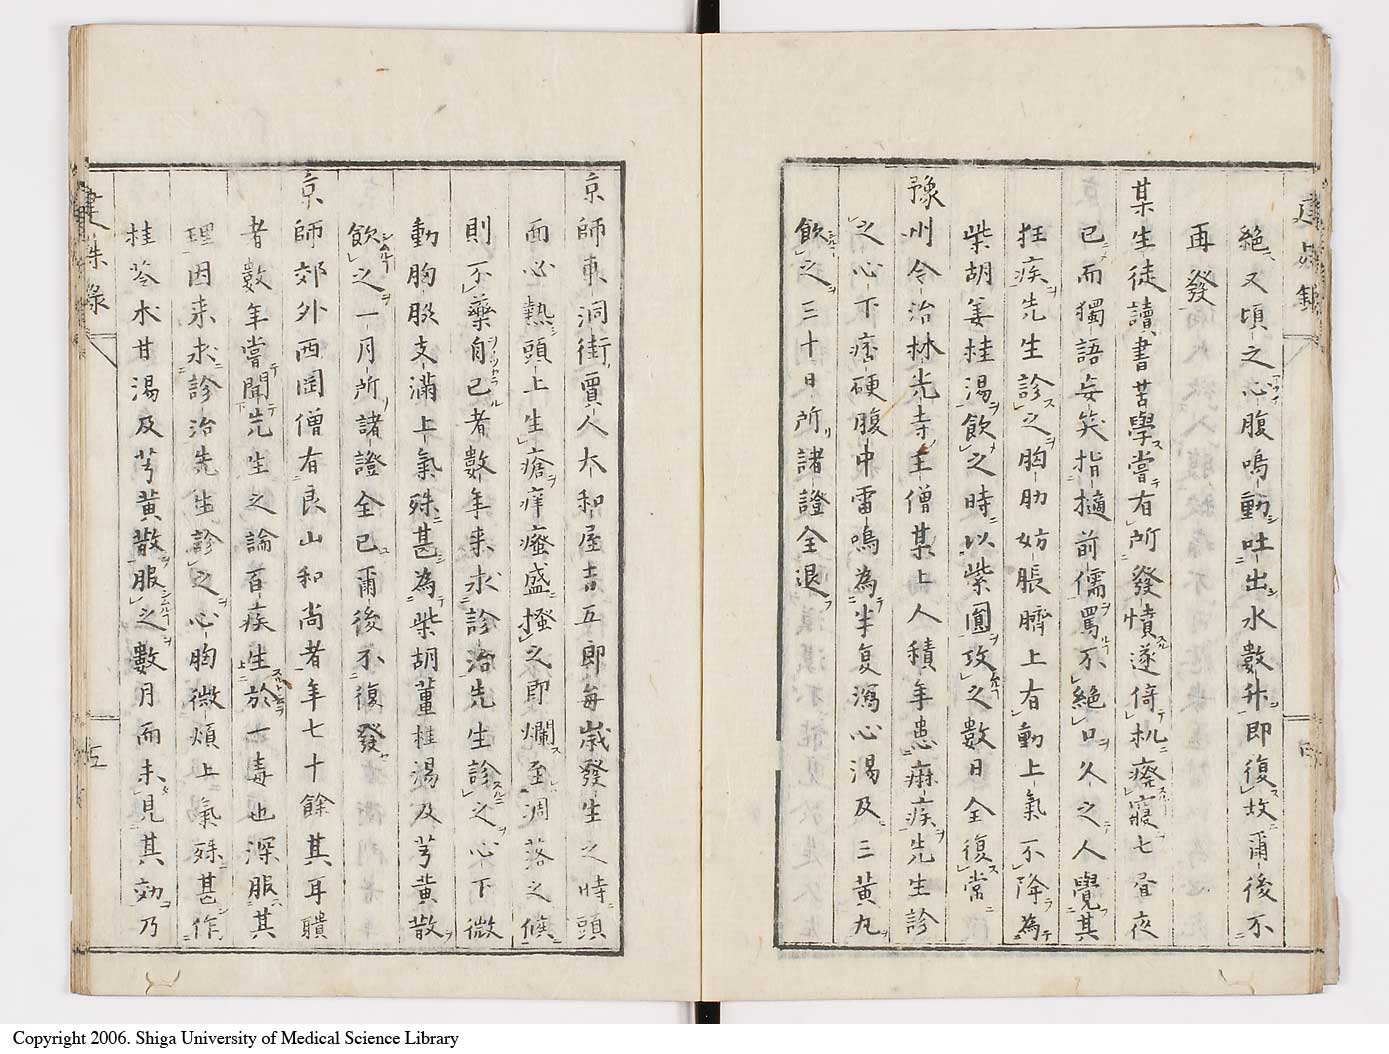 建殊録
四
絶又頃之心腹鳴動吐出水數升即復故爾後不
再發
某生徒讀書苦學嘗有所發憤遂倚机癈寢七晝夜
已而獨語妄笑指擿前儒罵不絶口久之人覺其
狂疾先生診之胸肋妨脹臍上有動上氣不降為
柴胡姜桂湯飲之時以紫圓攻之數日全復常
豫州今治林光寺主僧某上人積年患痳疾先生診
之心下痞硬腹中雷鳴為半夏瀉心湯及三黄丸
飲之三十日所諸證全退
京師東洞街賈人大和屋吉五郎每歲發生之時頭
面必熱頭上生瘡痒瘙盛搔之即爛至凋落之候
則不藥自已者數年来求診治先生診之心下微
動胸脇支滿上氣殊甚為柴胡薑桂湯及芎黄散
飲之一月所諸證全已爾後不復發
京師郊外西岡僧有良山和尚者年七十餘其耳聵
者數年嘗聞先生之論百疾生於一毒也深服其
理因来求診治先生診之心胸微煩上氣殊甚作
桂苓朮甘湯及芎黄散服之數月而未見其効乃
建殊録
五
Copyright 2006. Shiga University of Medical Science Library